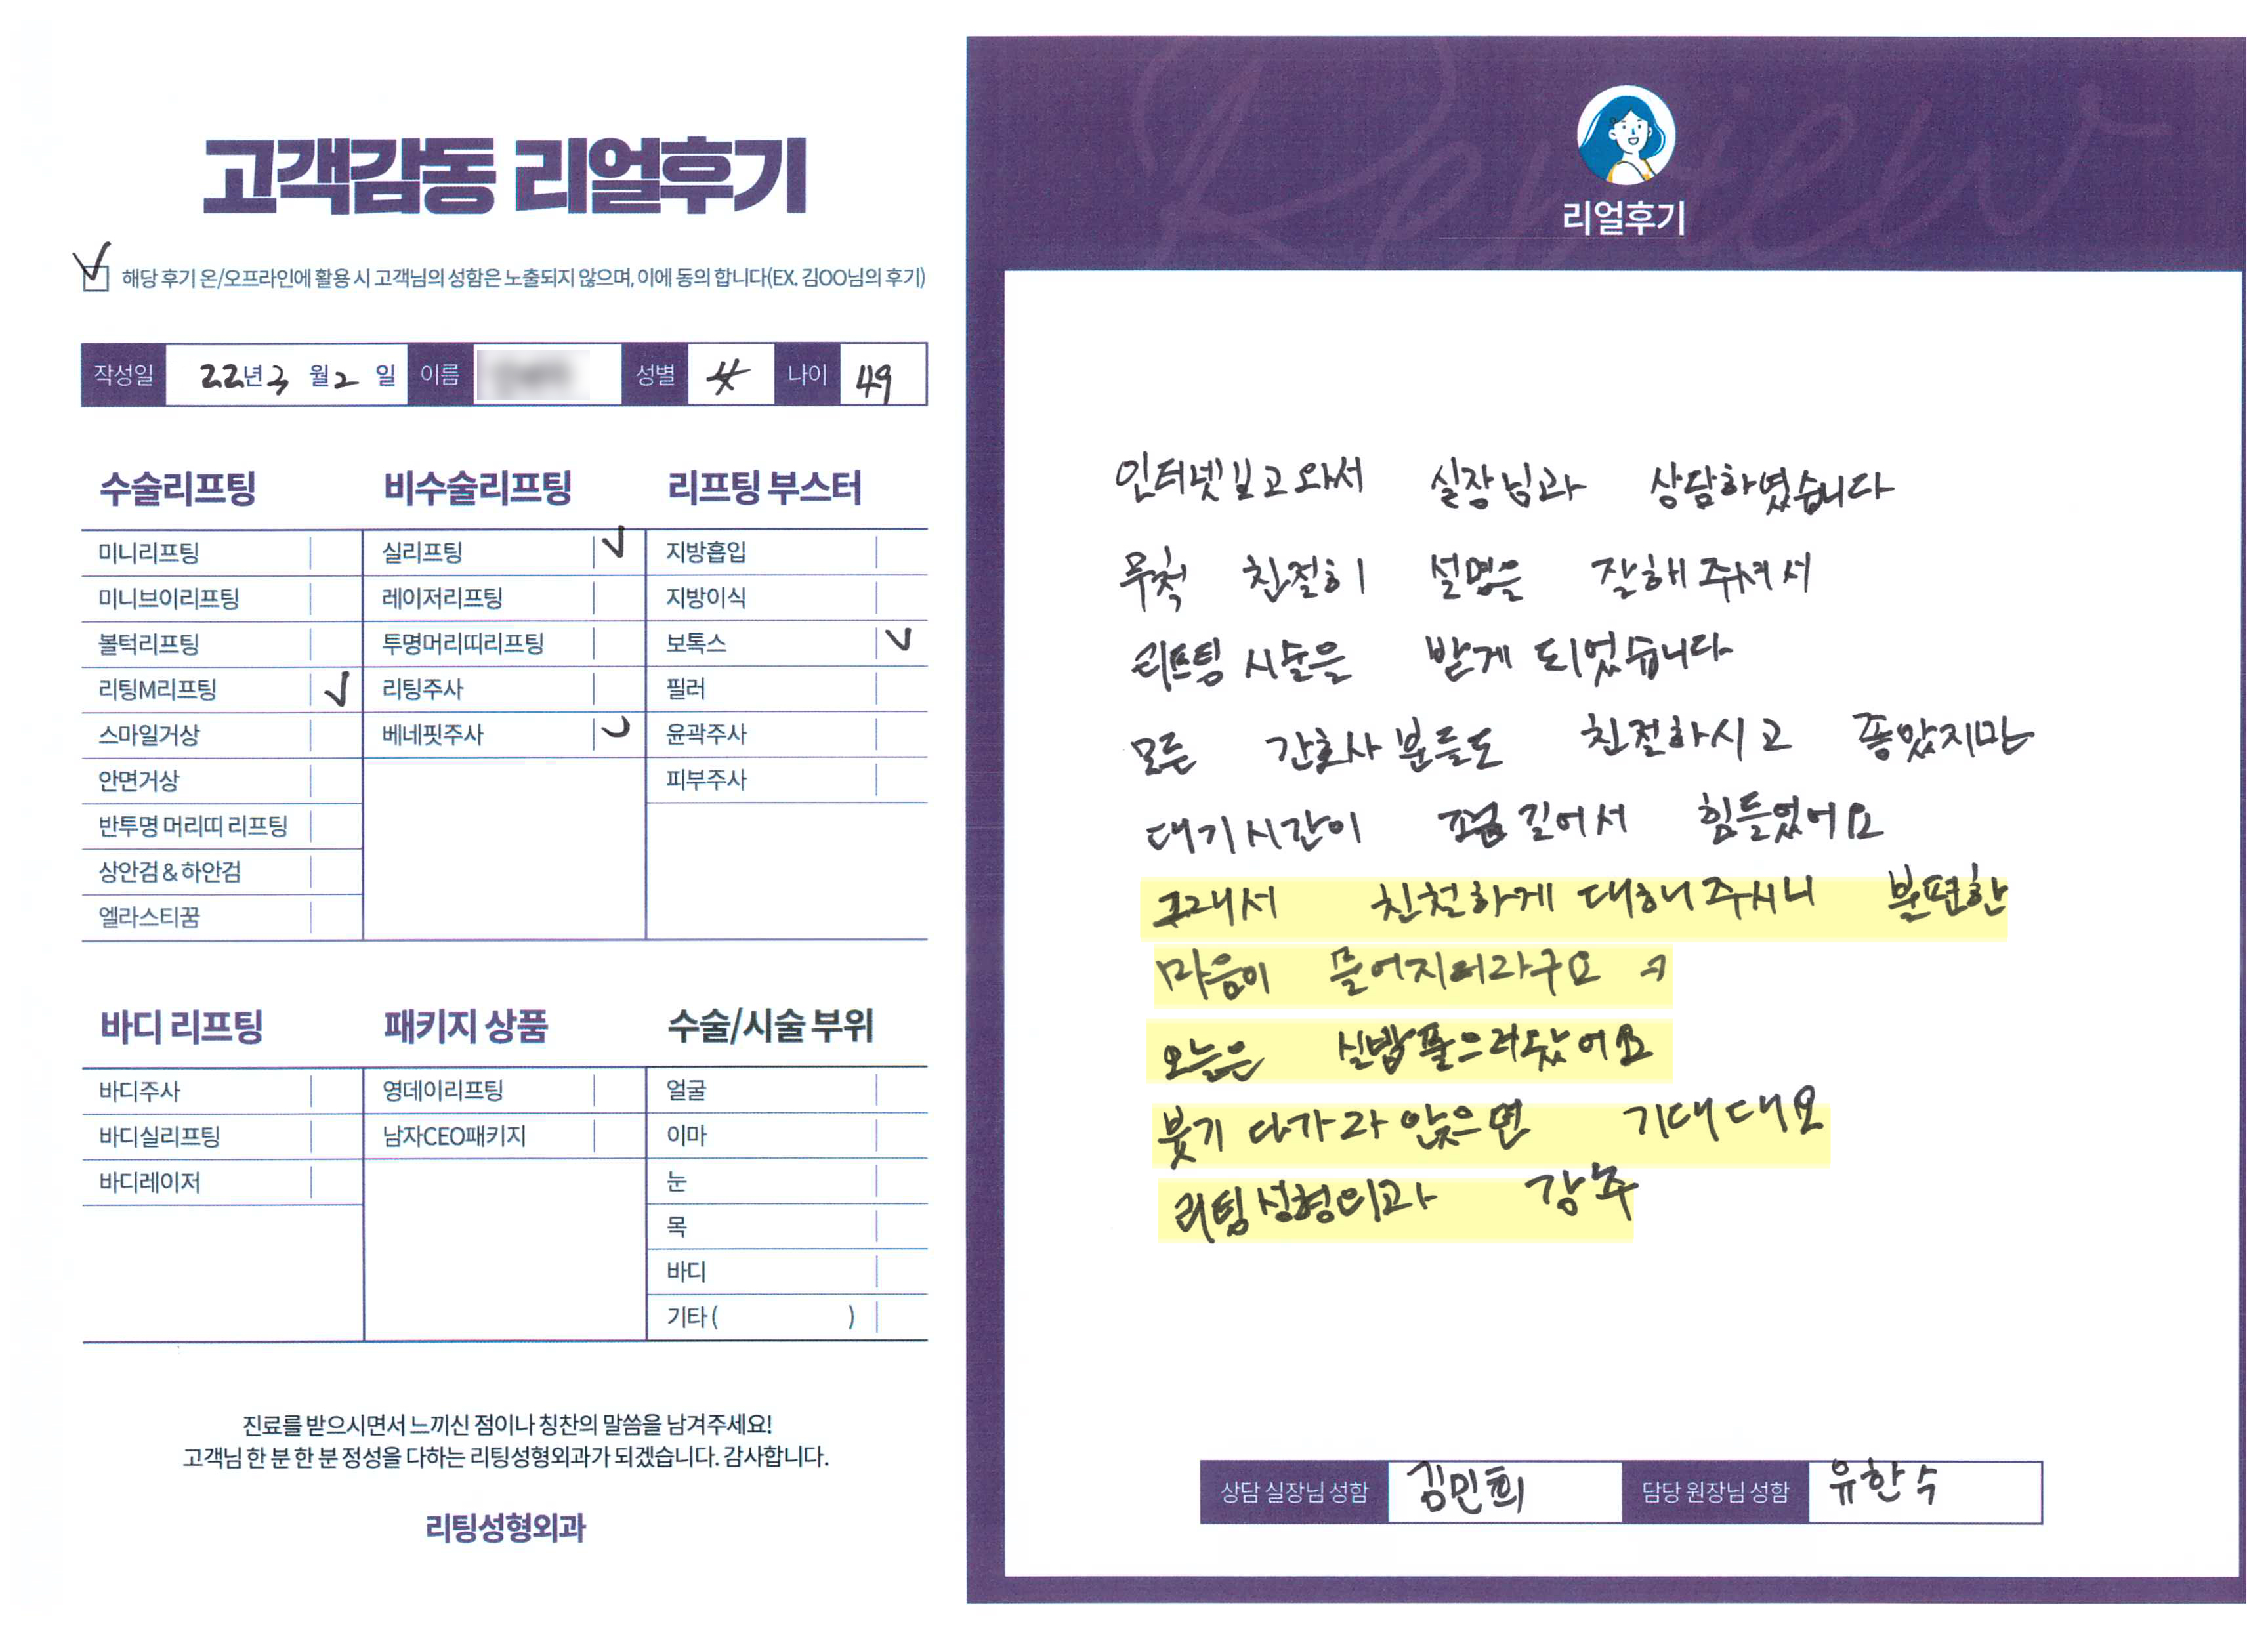 고객감동 리얼후기
해당 후기 온/오프라인에 활용 시 고객님의 성함은 노출되지 않으며, 이에 동의 합니다(EX. 김OO님의 후기)
작성일 22년 3 월 2 일 이름 성별 나이 49
수술리프팅 비수술리프팅 리프팅 부스터
미니리프팅 실리프팅 지방흡입
미니브이리프팅 레이저리프팅 지방이식
볼턱리프팅 투명머리띠리프팅 보톡스
리팅M리프팅 리팅주사 필러
스마일거상 베네핏주사 윤곽주사
안면거상 피부주사
반투명 머리띠 리프팅
상안검 & 하안검
엘라스티꿈
바디 리프팅 패키지 상품 수술/시술 부위
바디주사 영데이리프팅 얼굴
바디실리프팅 남자CEO패키지 이마
바디레이저 눈
목
바디
기타 ( )
진료를 받으시면서 느끼신 점이나 칭찬의 말씀을 남겨주세요!
고객님 한 분 한 분 정성을 다하는 리팅성형외과가 되겠습니다. 감사합니다.
리팅성형외과
Review
리얼후기
인터넷보고 와서 실장님과 상담하였습니다
무척 친절히 설명을 잘해 주셔서
리프팅 시술을 받게 되었습니다
모든 간호사 분들도 친절하시고 좋았지만
대기시간이 길어서 힘들었어요
그래서 친절하게 대해 주시니 불편한
마음이 풀어지더라구요
오늘은 실밥풀으러왔어요
붓기 다가라 앉으면 기대대요
리팅성형외과 강추
상담 실장님 성함 김민희 담당 원장님 성함 유한수